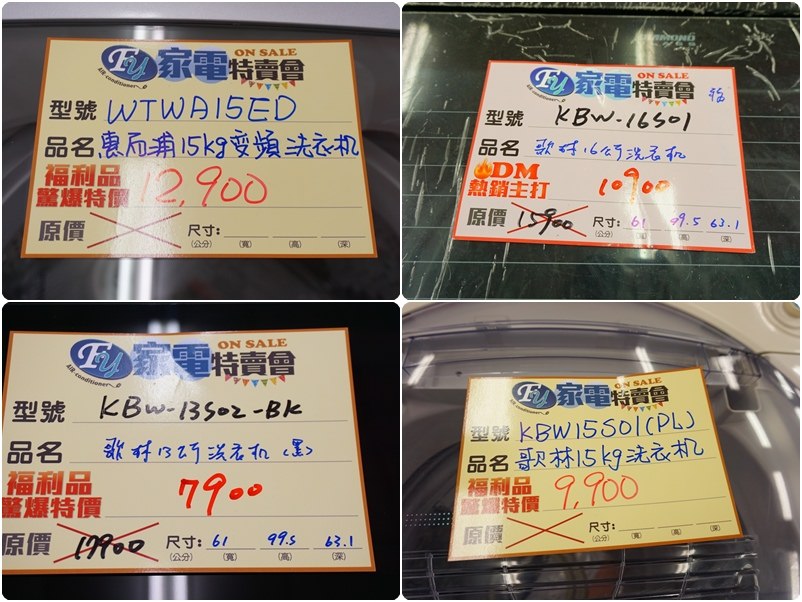 FU
AIR-conditioner
ON SALE
家電特賣會
型號 WTWA15ED
品名 惠而浦15kg变頻洗衣机
福利品
驚爆特價 12,900
原價 尺寸:
(公分) (寬) (高) (深)
DIAMOND
FU
AIR-conditioner
ON SALE
家電特賣會
型號 KBW-16S01
品名 歌林16公斤洗衣机
DM
熱銷主打 10900
原價 15900 尺寸: 61 99.5 63.1
(公分) (寬) (高) (深)
FU
AIR-conditioner
ON SALE
家電特賣會
型號 KBW-13S02-BK
品名 歌林13公斤洗衣机(黑)
福利品
驚爆特價 7900
原價 17900 尺寸: 61 99.5 63.1
(公分) (寬) (高) (深)
FU
AIR-conditioner
ON SALE
家電特賣會
型號 KBW15S01(PL)
品名 歌林15kg洗衣机
福利品
驚爆特價 9,900
原價 尺寸:
(公分) (寬) (高) (深)